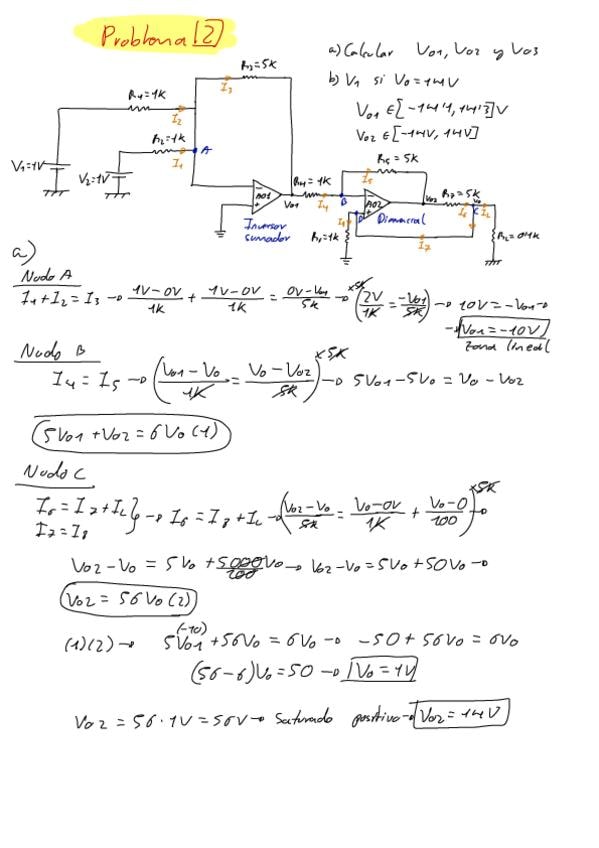 Problema [2]
a) Calcular Vo1, Vo2 y Vo3
b) V1 si Vo = 14V
Vo1 ∈ [-14'4, 14'3] V
Vo2 ∈ [-14V, 14V]
R3=5K
I3
R4=1K
I2
R2=1K
I1
A
V1=1V
V2=1V
AO1
Vo1
Inversor
sumador
R4=1K
I4
B
R5=5K
I5
AO2
Vo2
Diferencial
R7=5K
I6
Vo
C
IL
R1=1K
I8
D
I7
RL=0'1K
a)
Nudo A
I1+I2=I3 → (1V-0V)/1K + (1V-0V)/1K = (0V-Vo1)/5K → (2V/1K = -Vo1/5K)×5K → 10V=-Vo1 →
→ Vo1=-10V
zona lineal
Nudo B
I4=I5 → ((Vo1-Vo)/1K = (Vo-Vo2)/5K)×5K → 5Vo1-5Vo = Vo-Vo2
5Vo1+Vo2=6Vo (1)
Nudo C
I6=I7+IL
I7=I8
} → I6=I8+IL → ((Vo2-Vo)/5K = (Vo-0V)/1K + (Vo-0)/100)×5K →
Vo2-Vo = 5Vo + 5000/100 Vo → Vo2-Vo=5Vo+50Vo →
Vo2=56Vo (2)
(1)(2) → 5Vo1(-10)+56Vo=6Vo → -50+56Vo=6Vo
(56-6)Vo=50 → Vo=1V
Vo2=56·1V=56V → Saturado positivo → Vo2=14V